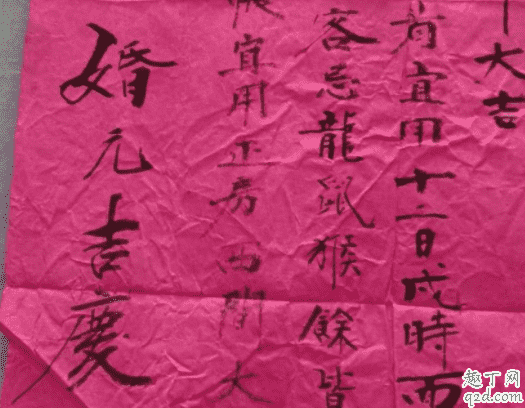 大吉
宜用十二日戌時
客忌龍鼠猴餘皆
宜用正房西間大
婚元吉慶
趣丁网
q2d.com